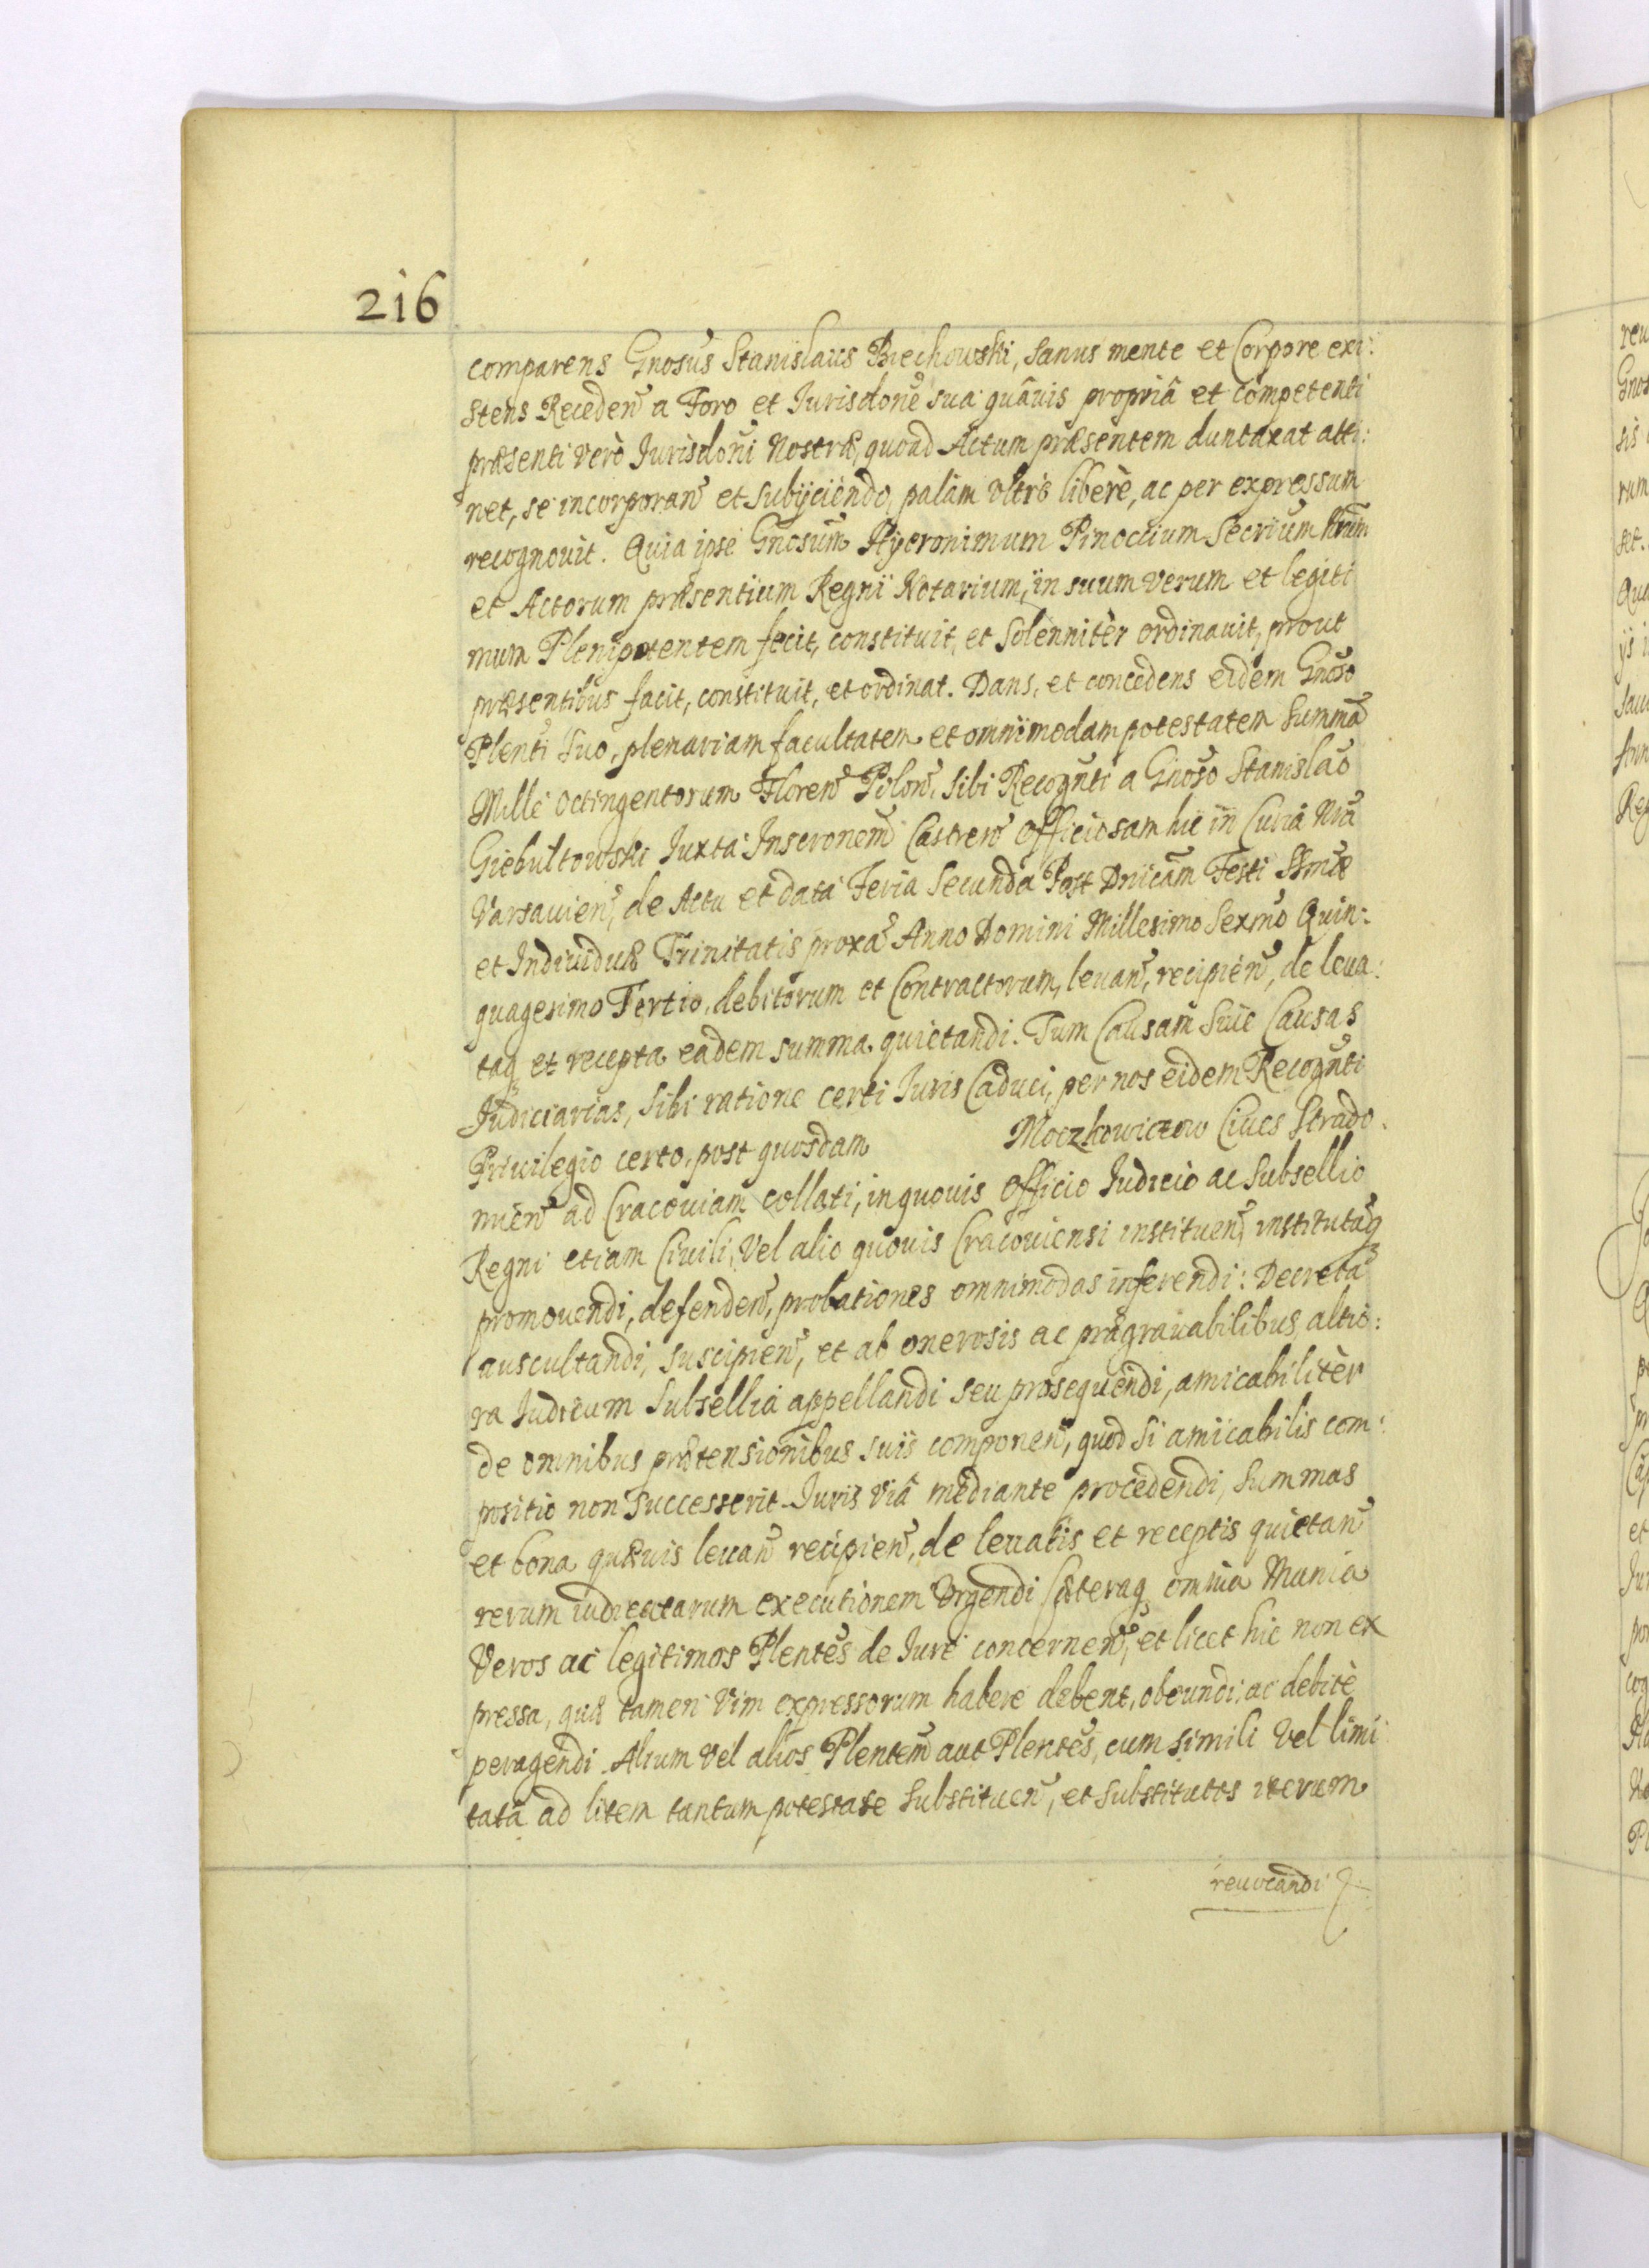 216
comparens Gnosus Stanislaus Biechowski, sanus mente et Corpore exi:
stens Receden a Foro et Jurisdone sua quâvis propriâ et competenti
præsenti verò Jurisdoni Nostræ, quoad Actum præsentem duntaxat atti:
net, se incorporan et subijciendo, palàm ultrò liberè, ac per expressum
recognovit. Quia ipse Gnosum Hyeronimum Pinoccium Secrium Nrum
et Actorum præsentium Regni Notarium, in suum verum et legiti
mum Plenipotentem fecit, constituit, et solennitèr ordinavit, prout
præsentibus facit, constituit, et ordinat. Dans, et concedens eidem Gnoso
Plenti suo, plenariam facultatem et omnimodam potestatem summâ
Mille octingentorum Floren Polon, sibi Recognti a Gnoso Stanislao
Giebultowski Juxta Inscronem Castren Officiosam hic in Curia Nra
Varsavien, de Actu et data Feria Secunda Post Dnicam Festi SSmæ
et Individuæ Trinitatis proxa Anno Domini Millesimo Sexmo Quin:
quagesimo Tertio, debitorum et Contractorum, levan, recipien, de leva:
taq et recepta eadem summa quietandi. Tum Causam sive Causas
Judiciarias, sibi ratione certi Juris Caduci, per nos eidem Recognti
Privilegio certo, post quosdam Moczkowiczow Cives Strado:
mien ad Cracoviam collati, in quovis Officio Judicio ac Subsellio
Regni etiam Civili, vel alio quovis Cracoviensi instituen, institutaq
promovendi, defenden, probationes omnimodas inferendi: Decreta
auscultandi, suscipien, et ab onerosis ac prægravabilibus, altio:
ra Judicum Subsellia appellandi seu prosequendi, amicabilitèr
de omnibus prætensionibus suis componen, quod si amicabilis com:
positio non successerit Juris viâ mediante procedendi, summas
et bona quævis levan recipien, de levatis et receptis quietan
rerum iudicatarum executionem Urgendi Cæteraq omnia Munia
Veros ac legitimos Plentes de Jure concernen, et licet hic non ex
pressa, quæ tamen vim expressorum habere debent, obeundi, ac debitè
peragendi. Alium vel alios Plentem aut Plentes, cum simili vel limi
tatâ ad litem tantum potestate substituen, et substitutos iterum
revocandi